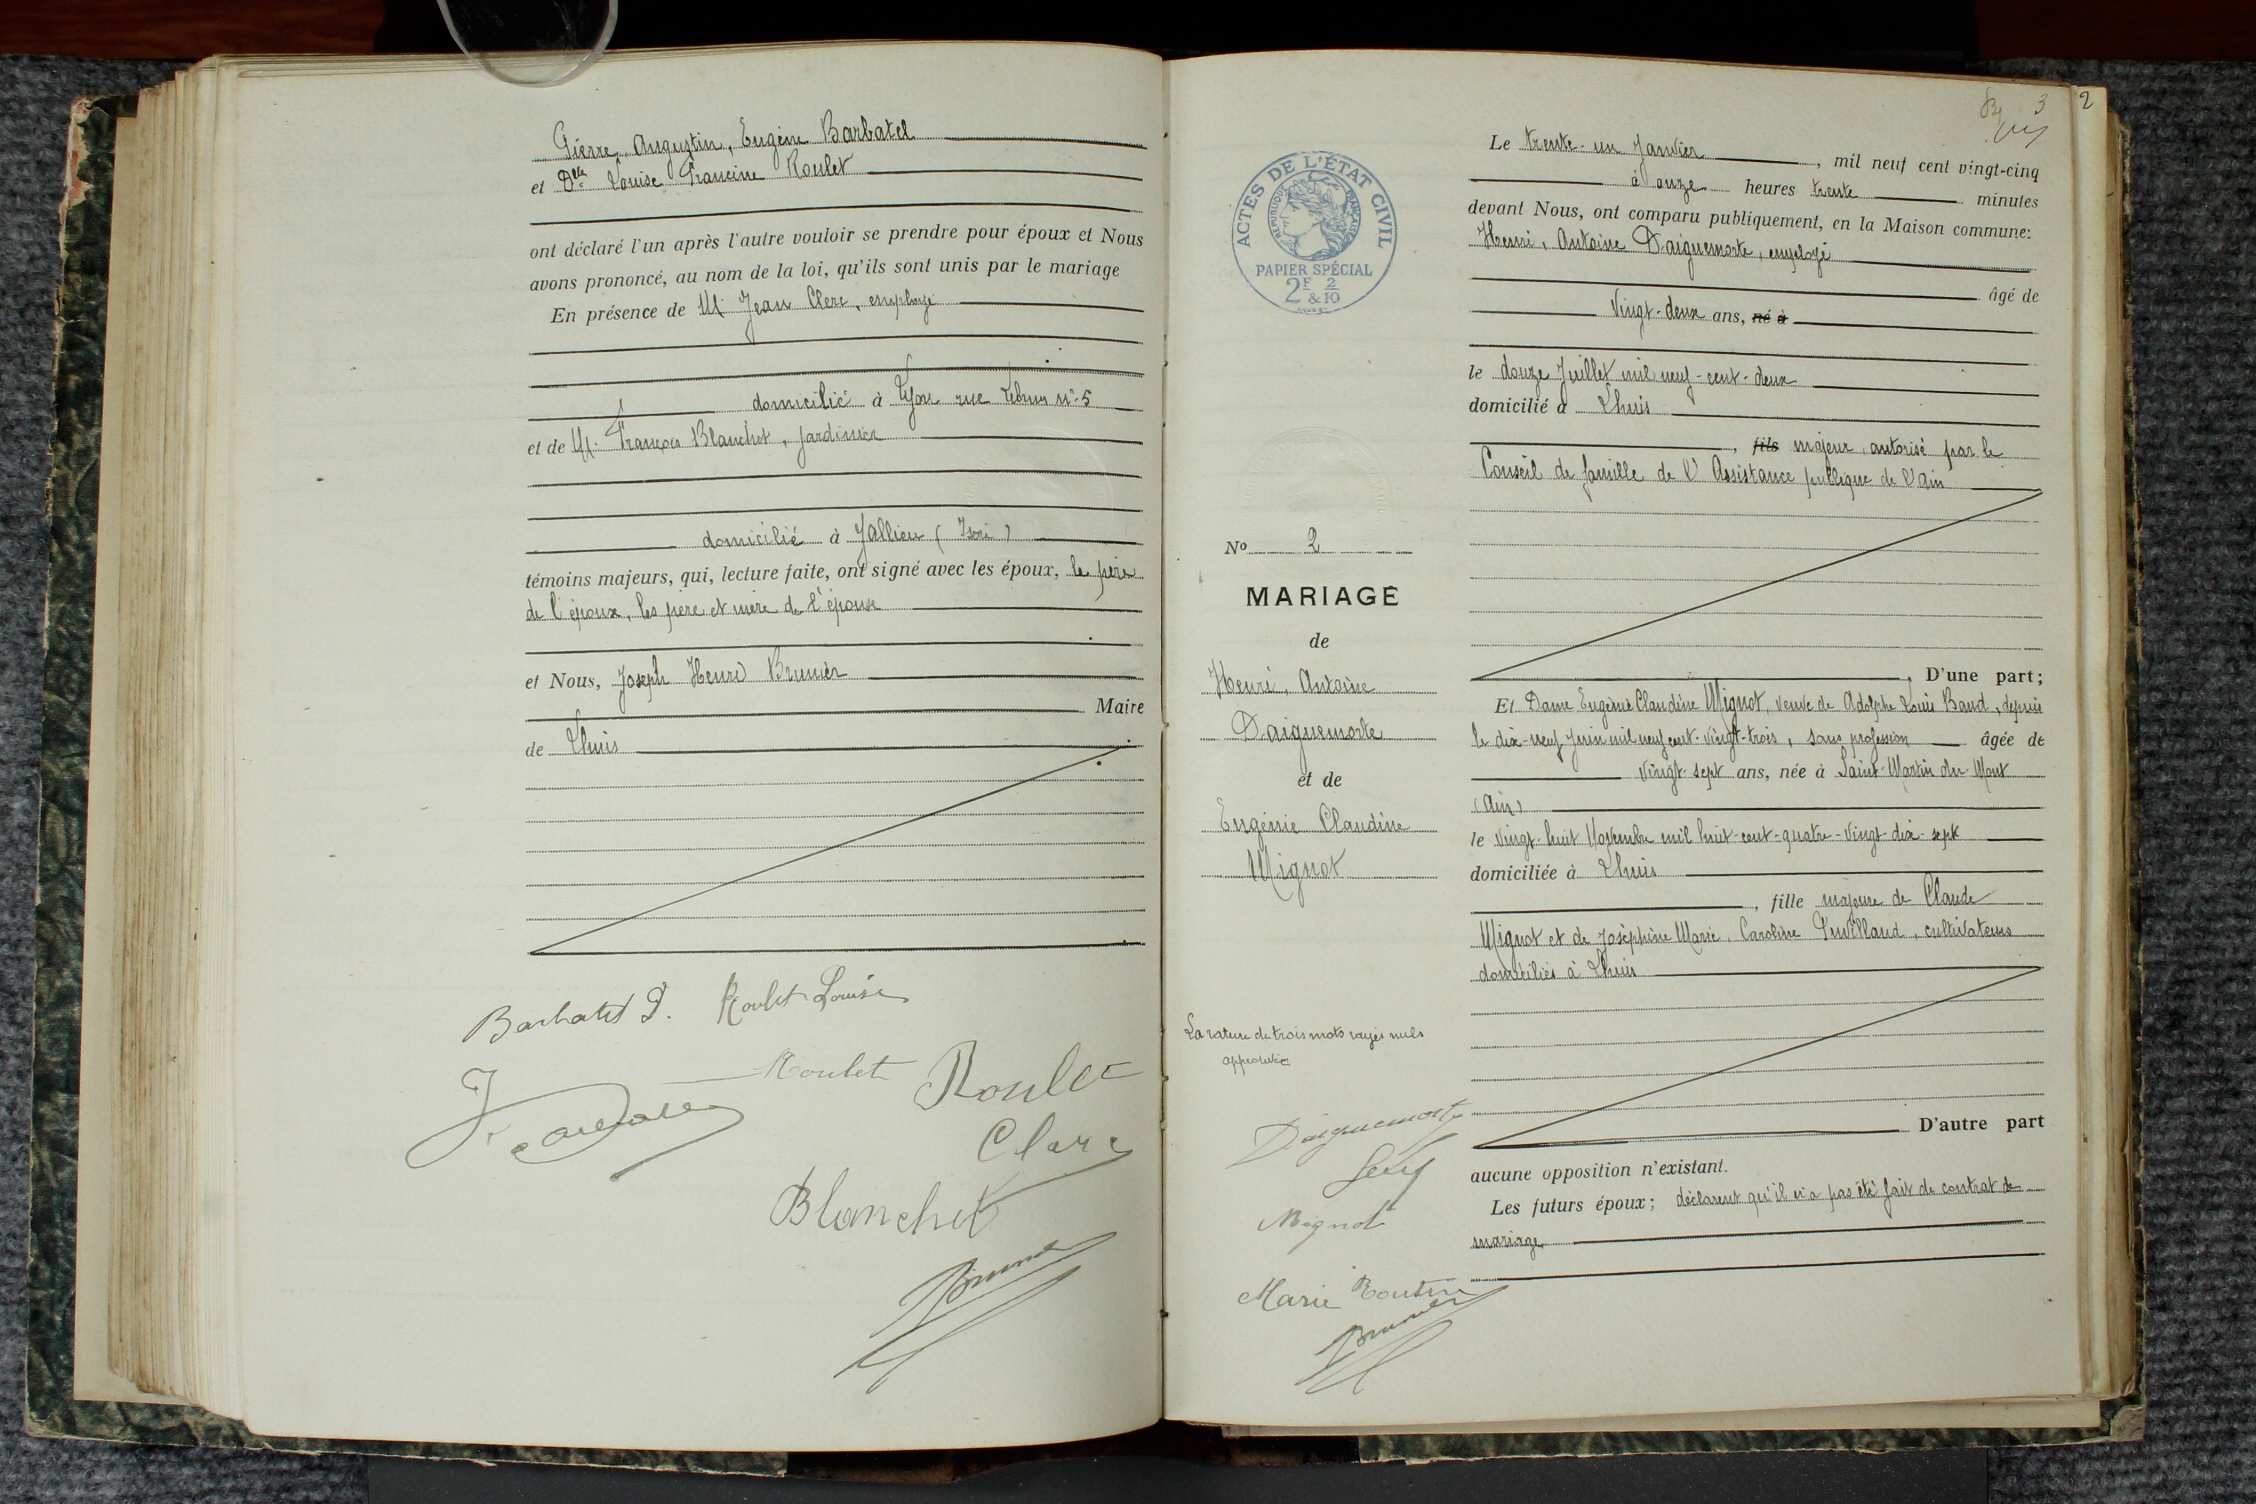 Pierre, Augustin, Eugène Barbatel
et Delle Louise Francine Roulet
ont déclaré l'un après l'autre vouloir se prendre pour époux et Nous
avons prononcé, au nom de la loi, qu'ils sont unis par le mariage
En présence de M. Jean Clerc, employé
domicilié à Lyon rue n° 5
et de M. François Blanchet, jardinier
domicilié à Jallieu (Isère)
témoins majeurs, qui, lecture faite, ont signé avec les époux, le père
de l'époux, les père et mère de l'épouse
et Nous, Joseph Henri Brunier
Maire
de Lhuis
Barbatel P. Roulet Louise
Roulet Roulet
Clerc
Blanchet
Brunier
3 2
ACTES DE L'ÉTAT CIVIL
RÉPUBLIQUE FRANÇAISE
PAPIER SPÉCIAL
2F & 2/10
N° 2
MARIAGE
de
Henri, Antoine
Daiguemorte
et de
Eugénie Claudine
Mignot
La rature de trois mots rayés nuls
approuvée
Daiguemorte
Mignot
Marie Boutin
Brunier
Le trente-un Janvier, mil neuf cent vingt-cinq
à onze heures trente minutes
devant Nous, ont comparu publiquement, en la Maison commune:
Henri, Antoine Daiguemorte, employé
âgé de
vingt-deux ans, né à
le douze Juillet mil neuf-cent-deux
domicilié à Lhuis
, fils majeur, autorisé par le
Conseil de famille de l'Assistance publique de l'Ain
, D'une part;
Et Dame Eugénie Claudine Mignot, veuve de Adolphe Louis Baud, depuis
le dix-neuf Juin mil neuf cent-vingt-trois, sans profession âgée de
vingt-sept ans, née à Saint-Martin du Mont
(Ain)
le vingt-huit Novembre mil huit-cent-quatre-vingt-dix-sept
domiciliée à Lhuis
, fille majeure de Claude
Mignot et de Joséphine Marie, Caroline, cultivateurs
domiciliés à Lhuis
D'autre part
aucune opposition n'existant.
Les futurs époux; déclarent qu'il n'a pas été fait de contrat de
mariage